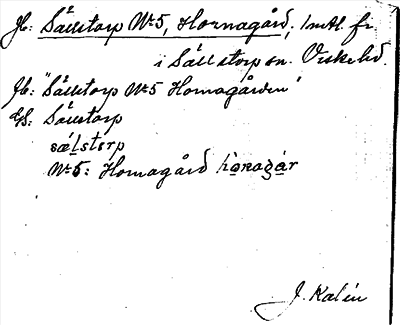 Jb: Sällstorp № 5, Hornagård, 1 mtl. fr.
i Sällstorp sn. Viske hd.
Jb: "Sällstorp № 5 Hornagården"
ds: Sällstorp
sǽlstorp
№ 5: Hornagård hornagår
J. Kalén